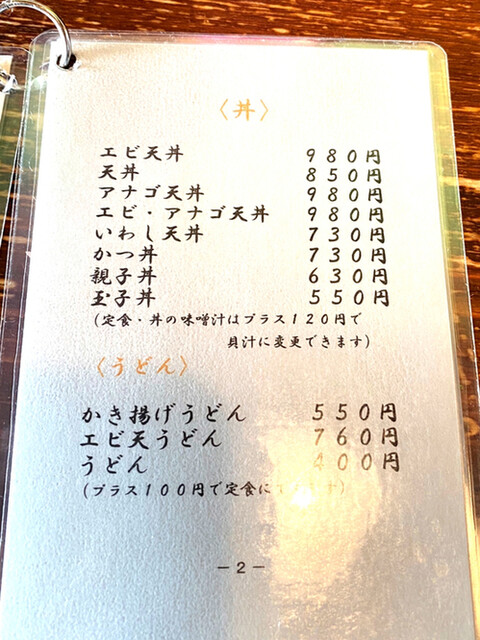 〈丼〉
エビ天丼 980円
天丼 850円
アナゴ天丼 980円
エビ・アナゴ天丼 980円
いわし天丼 730円
かつ丼 730円
親子丼 630円
玉子丼 550円
(定食・丼の味噌汁はプラス120円で
貝汁に変更できます)
〈うどん〉
かき揚げうどん 550円
エビ天うどん 760円
うどん 400円
(プラス100円で定食に
－2－